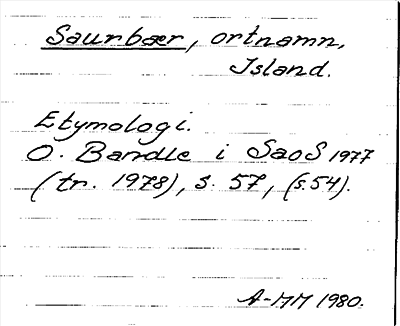 Saurbær, ortnamn,
Island.
Etymologi.
O. Bandle i SaoS 1977
(tr. 1978), s. 57, (s.54).
A-MM 1980.